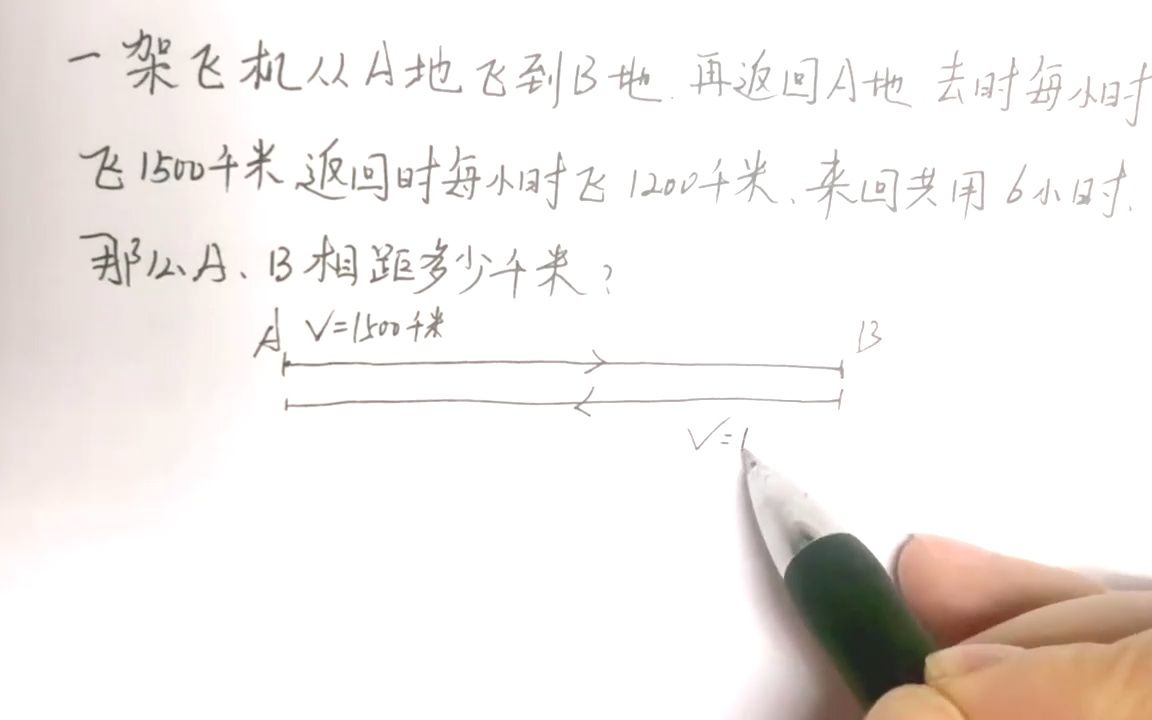 一架飞机从A地飞到B地.再返回A地 去时每小时
飞1500千米 返回时每小时飞1200千米、来回共用6小时.
那么A、B相距多少千米?
A V=1500千米 B
V=1